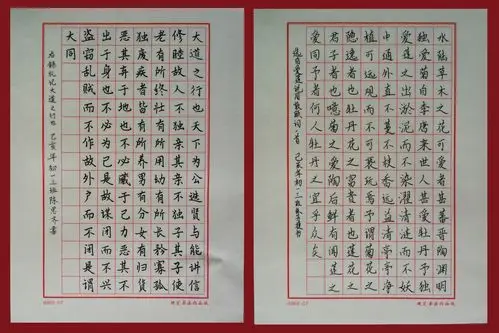 大道之行也天下为公选贤与能讲信
修睦故人不独亲其亲不独子其子使
老有所终壮有所用幼有所长矜寡孤
独废疾者皆有所养男有分女有归货
恶其弃于地也不必藏于己力恶其不
出于身也不必为己是故谋闭而不兴
盗窃乱贼而不作故外户而不闭是谓
大同
右录礼记大道之行也 己亥年初一三班陈思齐书
水陆草木之花可爱者甚蕃晋陶渊明
独爱菊自李唐来世人甚爱牡丹予独
爱莲之出淤泥而不染濯清涟而不妖
中通外直不蔓不枝香远益清亭亭净
植可远观而不可亵玩焉予谓菊花之
隐逸者也牡丹花之富贵者也莲花之
君子者也噫菊之爱陶后鲜有闻莲之
爱同予者何人牡丹之爱宜乎众矣
爱莲说周敦颐词一首 己亥年初一三班